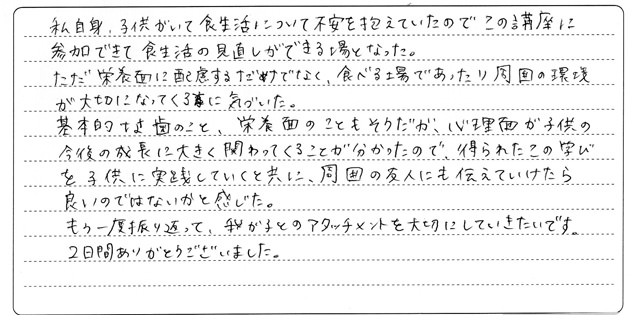 私自身、子供がいて食生活について不安を抱えていたのでこの講座に
参加できて食生活の見直しができる場となった。
ただ栄養面に配慮するだけでなく、食べる場であったり周囲の環境
が大切になってくる事に気づいた。
基本的な歯のこと、栄養面のこともそうだが、心理面が子供の
今後の成長に大きく関わってくることが分かったので、得られたこの学び
を子供に実践していくと共に、周囲の友人にも伝えていけたら
良いのではないかと感じた。
もう一度振り返って、我が子とのアタッチメントを大切にしていきたいです。
2日間ありがとうございました。